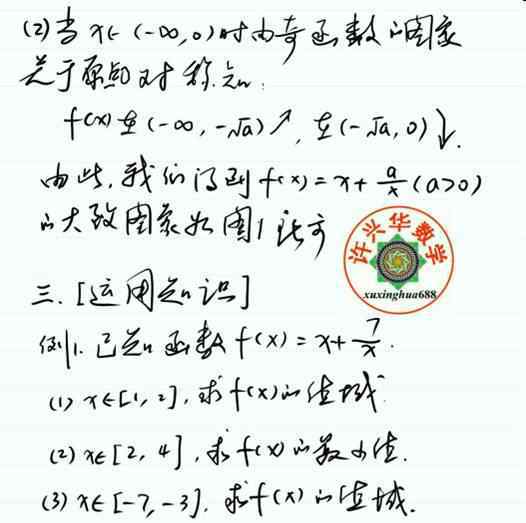 (2)当 x∈(-∞,0)时由奇函数的图象
关于原点对称知:
f(x)在(-∞,-√a)↗,在(-√a,0)↓.
由此,我们得到f(x)=x+a/x(a>0)
的大致图象如图1所示
许兴华数学
xuxinghua688
三.[运用知识]
例1.已知函数f(x)=x+7/x.
(1) x∈[1,2],求f(x)的值域.
(2) x∈[2,4],求f(x)的最小值.
(3) x∈[-7,-3],求f(x)的值域.